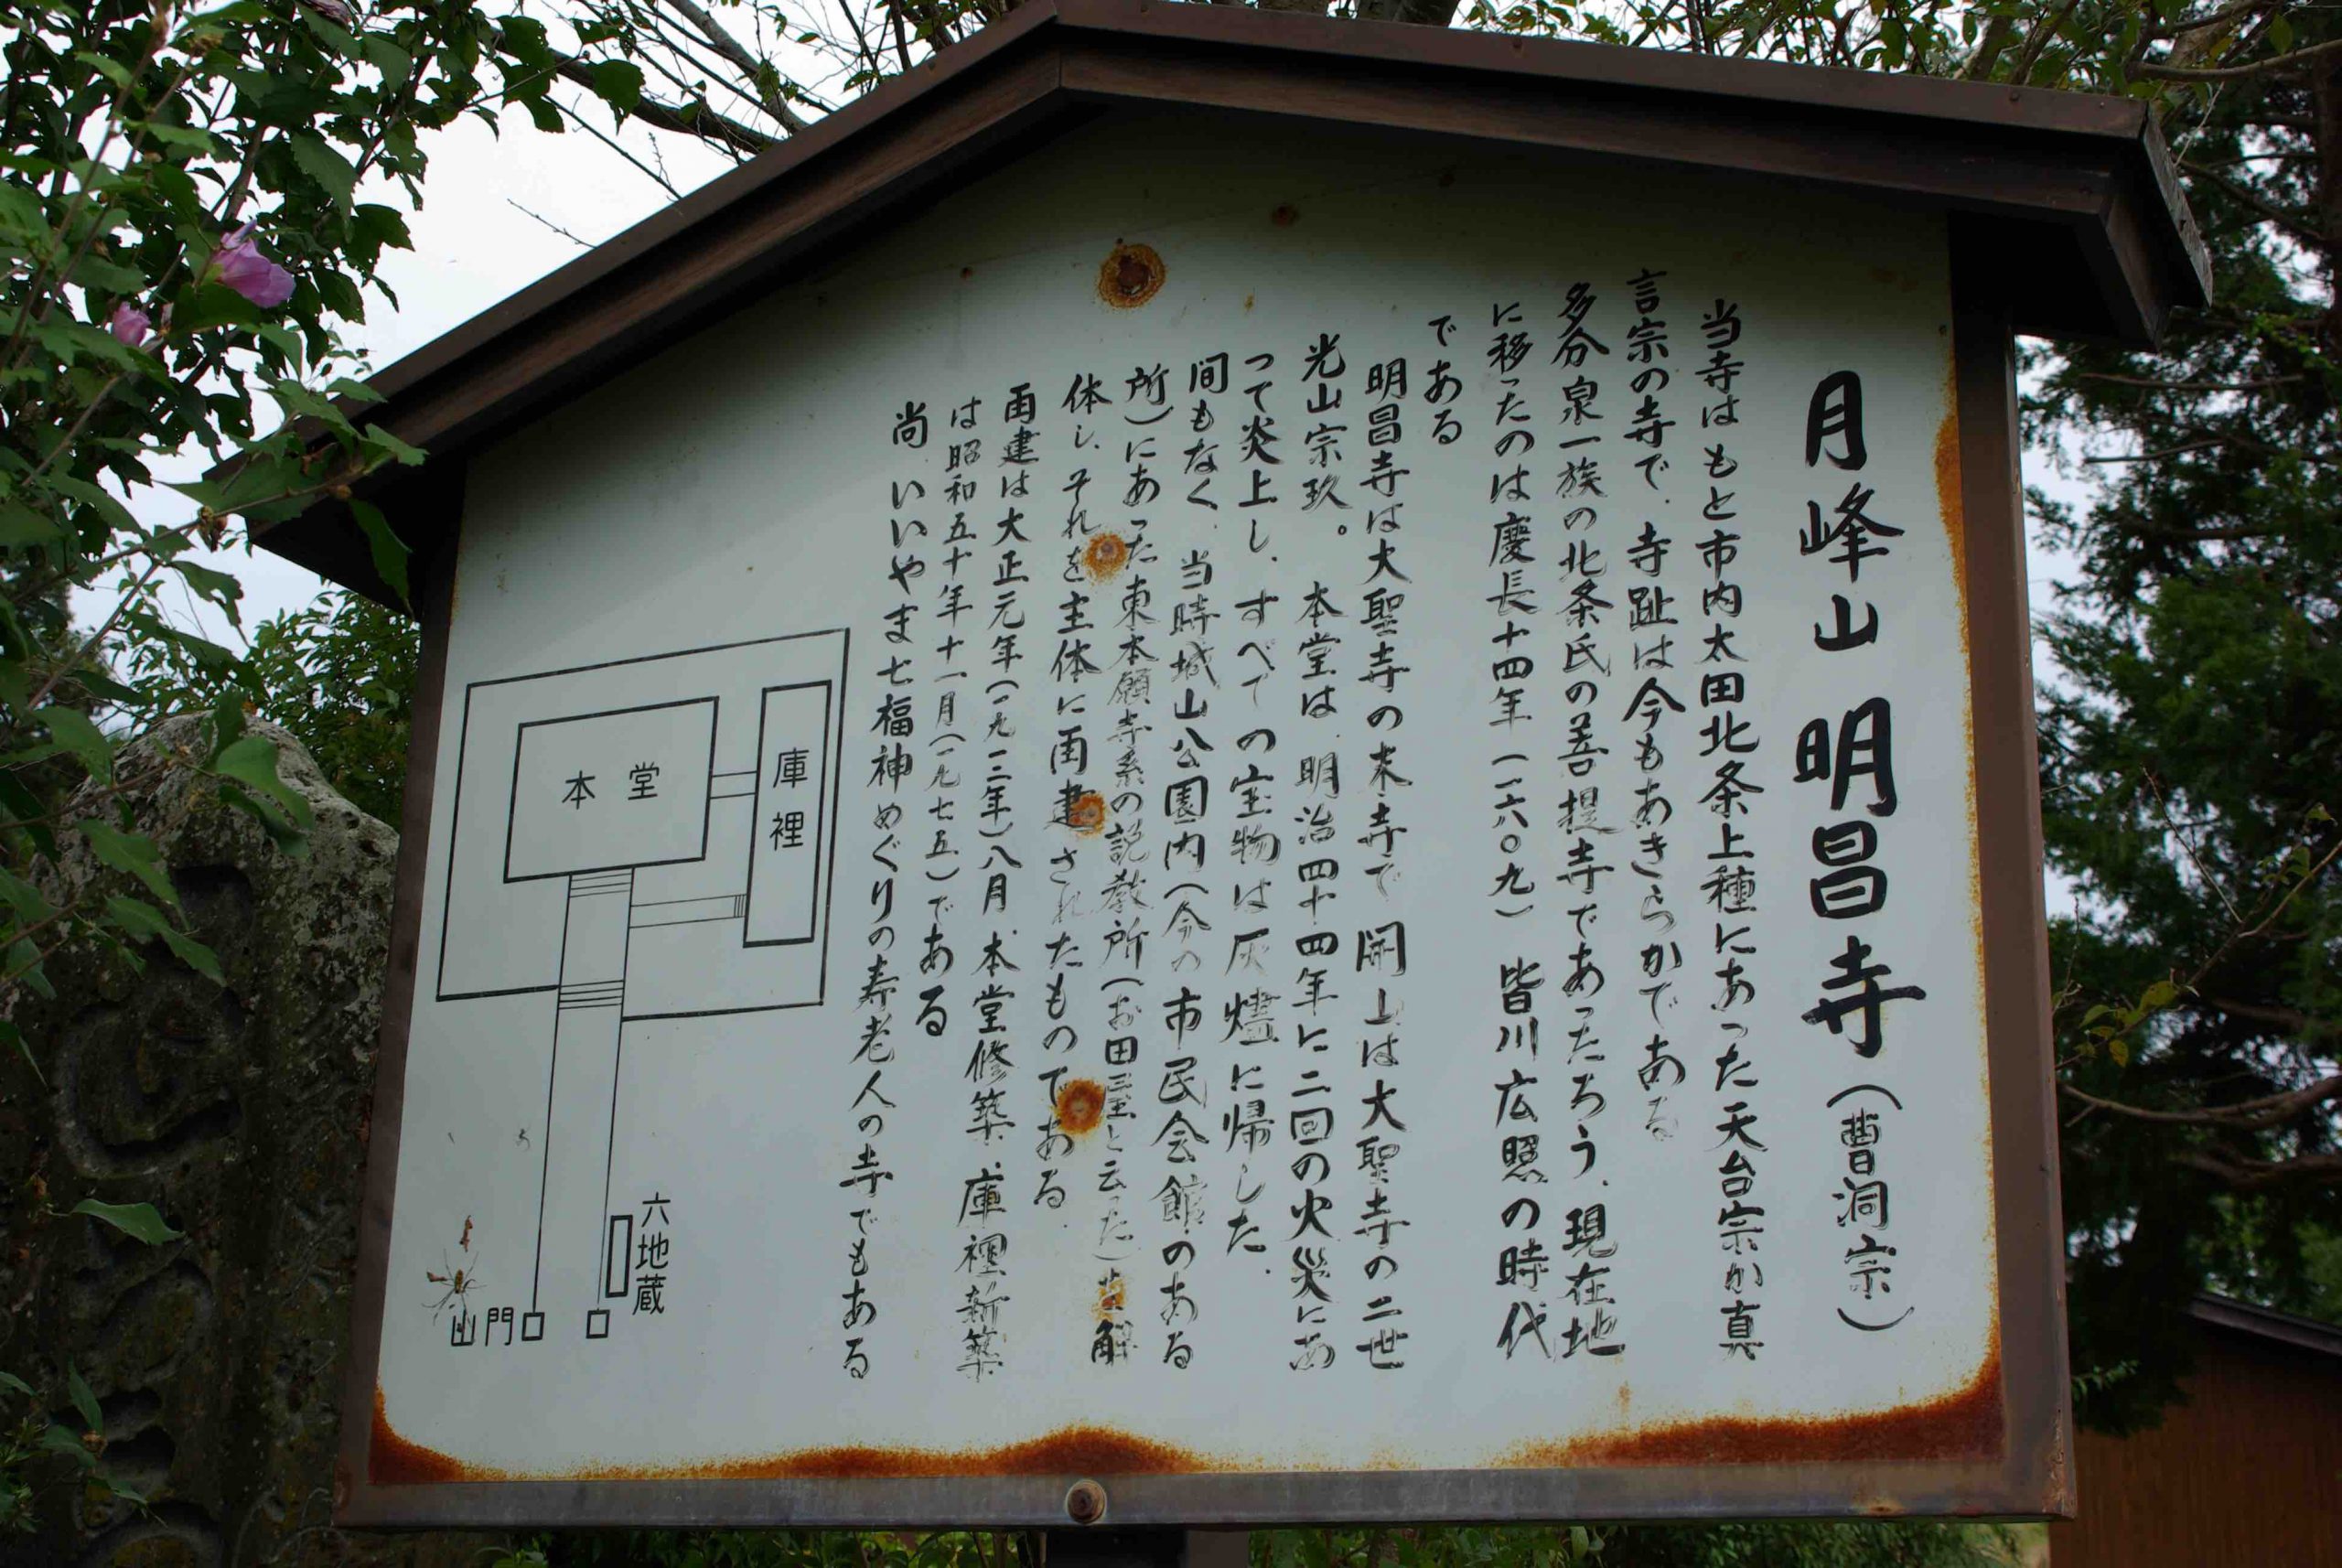 月峰山 明昌寺(曹洞宗)
当寺はもと市内太田北条上種にあった天台宗か真
言宗の寺で、寺趾は今もあきらかである
多分泉一族の北条氏の菩提寺であったろう、現在地
に移ったのは慶長十四年(一六〇九) 皆川広照の時代
である
明昌寺は大聖寺の末寺で 開山は大聖寺の二世
光山宗玖。 本堂は、明治四十四年に二回の火災にあ
って炎上し、すべての宝物は灰燼に帰した、
間もなく、当時城山公園内(今の市民会館のある
所)にあった東本願寺系の説教所(お田屋と云った)を解
体し、それを主体に再建されたものである、
再建は大正元年(一九一二年)八月、本堂修築、庫裡新築
は昭和五十年十一月(一九七五)である
尚 いいやま七福神めぐりの寿老人の寺でもある
本堂
庫裡
六地蔵
山門